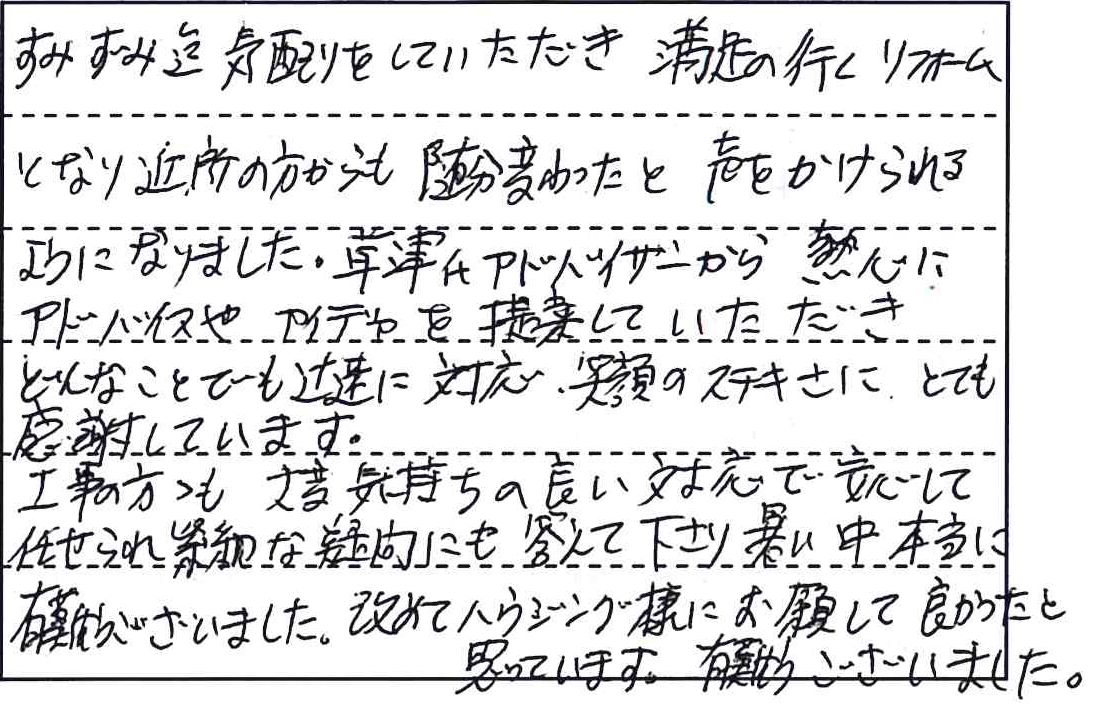 すみずみ迄気配りをしていただき 満足の行くリフォーム
となり近所の方からも 随分変わったと 声をかけられる
ようになりました。草津氏アドバイザーから 熱心に
アドバイスや アイデアを 提案していただき
どんなことでも迅速に 対応、笑顔のステキさに とても
感謝しています。
工事の方々も 大変気持ちの良い対応で安心して
任せられ些細な疑問にも 答えて下さり暑い中本当に
有難うございました。改めてハウジング様にお願して良かったと
思っています。有難うございました。